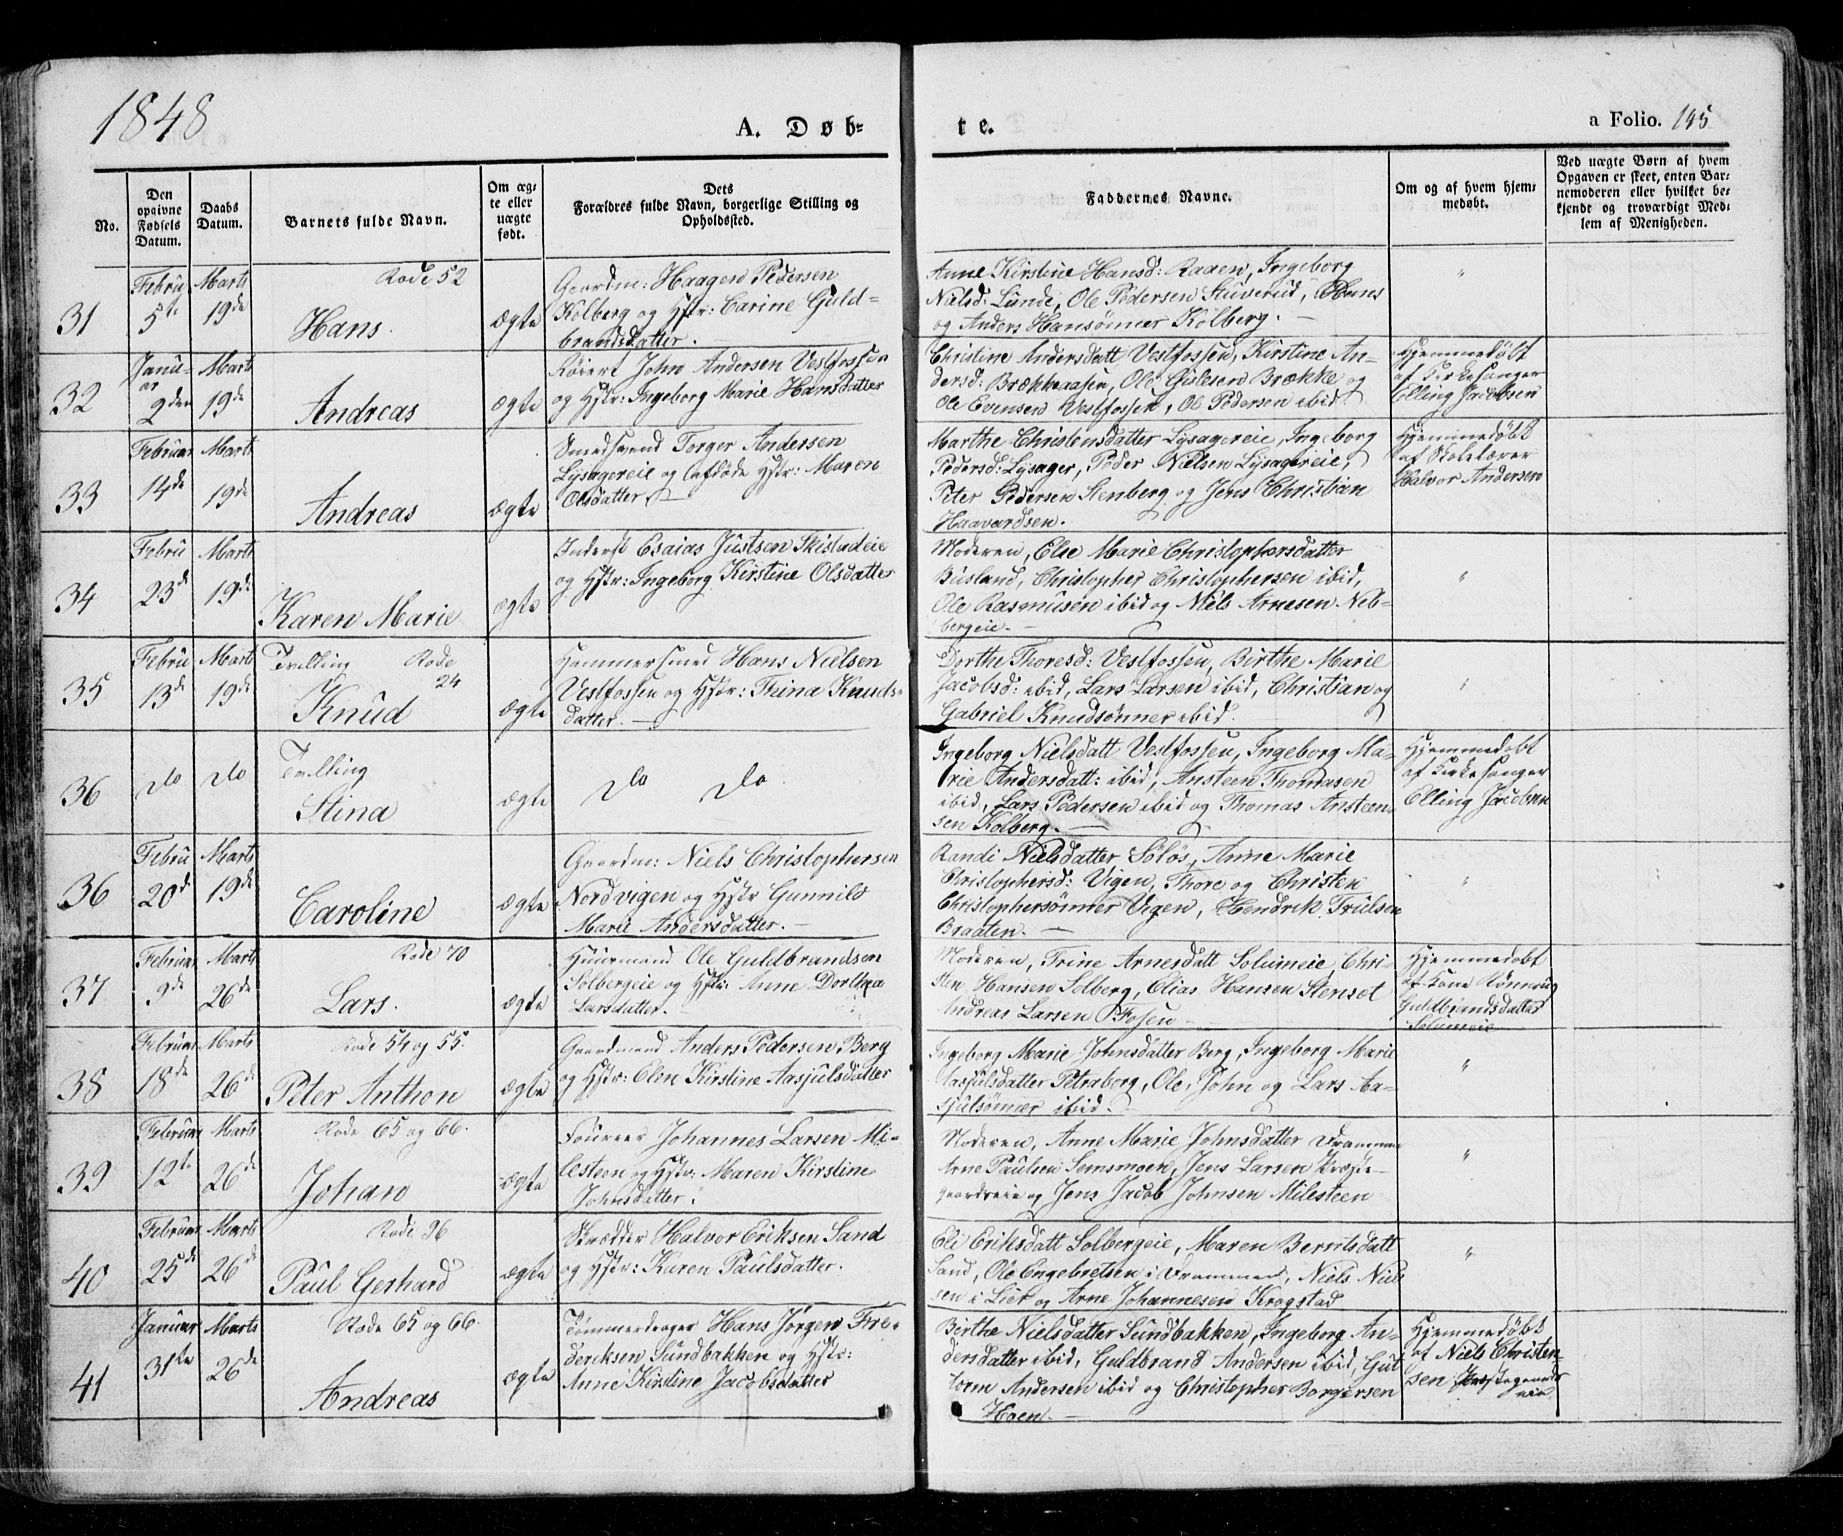 1848
A. Døb-
te.
a Folio. 145
No.
Den
opgivne
Fødsels
Datum.
Daabs
Datum.
Barnets fulde Navn.
Om æg-
te eller
uægte
født.
Dets
Forældres fulde Navn, borgerlige Stilling og
Opholdssted.
Faddernes Navne.
Om og af hvem hjem-
medøbt.
Ved uægte Børn af hvem
Opgaven er skeet, enten Bar-
nemoderen eller hvilket be-
kjendt og troværdigt Med-
lem af Menigheden.
31
Febru
5te
Marts
19de
Rode 52
Hans.
ægte
Gaardm: Haagen Pedersen
Kolberg og Hstr: Carine Guld-
brandsdatter.
Anne Kirstine Hansd: Raaen, Ingeborg
Nielsd: Lunde, Ole Pedersen Stuverud, Hans
og Anders Hansønner Kolberg.
"
32
Janu-
ar
9den
Marts
19de
Andreas
ægte
Røiert John Andersen Vestfossen
og Hstr: Ingeborg Marie Hansdatter
Christine Andersdatt Vestfossen, Kirstine An-
dersd: Brækkaasen, Ole Gislesen Brække og
Ole Evensen Vestfossen, Ol Pedersen ibid
Hjemmedøbt
af Kirkesanger
Elling Jacobsen
33
Februar
14de
Marts
19de
Andreas
ægte
Smedsvend Torger Andersen
Lysagereie og afdøde Hstr: Maren
Olsdatter
Marthe Christensdatter Lysagereie, Ingeborg
Pedersd: Lysager, Peder Nielsen Lysagereie,
Peter Pedersen Stenberg og Jens Christian
Haavardsen.
Hjemmedøbt
af Skolelærer
Halvor Andersen
34
Febru
23de
Marts
19de
Karen Marie
ægte
Inderst Esaias Justsen Skistadeie
og Hstr: Ingeborg Kirstine Olsdatter
Moderen, Else Marie Christophersdatter
Busland, Christopher Christophersen ibid,
Ole Rasmusen ibid og Niels Arnesen Neb-
bergeie.
"
35
Febru
13de
Marts
19de
Tvilling Rode
24
Knud
ægte
Hammersmed Hans Nielsen
Vestfossen og Hstr: Stina Knuds-
datter.
Dorthe Thoresd: Vestfossen, Birthe Marie
Jacobsd: ibid, Lars Larsen ibid, Christian og
Gabriel Knudsønner ibid.
"
36
Do
Do
Tvilling
Stina
ægte
Do Do
Ingeborg Nielsdatt Vestfossen, Ingeborg Ma-
rie Andersdatt: ibid, Ansteen Thomasen
ibid, Lars Pedersen ibid og Thomas Ansteen-
sen Kolberg.
Hjemmedøbt
af Kirkesanger
Elling Jacobsen
36
Febru
20de
Marts
19de
Caroline
ægte
Gaardm: Niels Christophersen
Nordvigen og Hstr Gunnild
Marie Andersdatter.
Randi Nielsdatter Soløs, Anne Marie
Christophersd: Vigen, Thore og Christen
Christophersønner Vigen, Hendrik Trulsen
Braaten.
"
37
Februar
9de
Marts
26de
Rode 70
Lars.
ægte
Huusmand Ole Guldbrandsen
Solbergeie og Hstr: Anne Dorthea
Larsdatter.
Moderen, Trine Arnesdatt Solumeie, Chri-
sten Hansen Solberg, Elias Hansen Stenset
Andreas Larsen Fosen
Hjemmedøbt
af Kone Rønnaug
Guldbrandsdatter
Solumeie
38
Februar
18de
Marts
26de
Rode 54 og 55.
Peter Anthon
ægte
Gaardmand Anders Pedersen Berg
og Hstr: Elen Kirstine Aasjulsdatter
Ingeborg Marie Johnsdatter Berg, Ingeborg Marie
Aasjulsdatter Petraborg, Ole, John og Lars Aa-
sjulsønner ibid.
"
39
Februar
12te
Marts
26de
Rode 65 og 66.
Johan
ægte
Foureer Johannes Larsen Mi-
lesteen og Hstr: Maren Kirstine
Johnsdatter.
Moderen, Anne Marie Johnsdatter Drammen
Arne Paulsen Semsmoen, Jens Larsen
gaardseie og Jens Jacob Johnsen Milesteen
"
40
Februar
25de
Marts
26de
Rode 36
Paul Gerhard
ægte
Skrædder Halvor Eriksen Sand
og Hstr: Karen Paulsdatter.
Ele Eriksdatt Solbergeie, Maren Berntsdatt
Sand, Ole Engebretsen i Drammen, Niels Niel-
sen i Lier og Arne Johannesen Krogstad
"
41
Januar
31te
Marts
26de
Rode 65 og 66.
Andreas
ægte
Tømmerdrager Hans Jørgen Fre-
deriksen Sundbakken og Hstr:
Anne Kirstine Jacobsdatter
Birthe Nielsdatter Sundbakken, Ingeborg An-
dersdatter ibid, Guldbrand Andersen ibid, Gut
torm Andersen ibid og Christopher Borgersen
Hoen.
Hjemmedøbt
af Niels Christen-
sen
eie